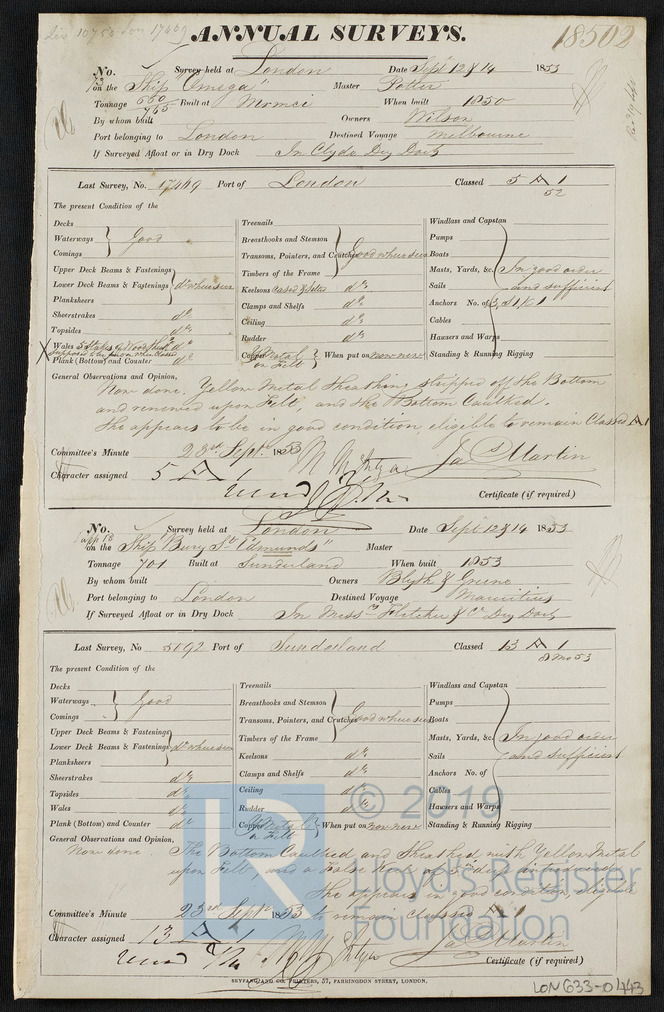 ANNUAL SURVEYS. 18502
No. Survey held at London Date Sept 12 & 14 1853
on the Ship "Omega" Master Potter
Tonnage 660 765 Built at When built 1850
By whom built Owners Wilson
Port belonging to London Destined Voyage Melbourne
If Surveyed Afloat or in Dry Dock In Clyde Dry Dock
Last Survey, No. 17469 Port of London Classed 5 A 1
52
The present Condition of the
Decks
Waterways Good
Comings
Upper Deck Beams & Fastenings
Lower Deck Beams & Fastenings do where seen
Planksheers
Sheerstrakes do
Topsides do
Wales do
Plank (Bottom) and Counter do
Treenails
Breasthooks and Stemson
Transoms, Pointers, and Crutches Good where seen
Timbers of the Frame
Keelsons do
Clamps and Shelfs do
Ceiling do
Rudder do
Copper Y. Metal on Felt When put on now new
Windlass and Capstan
Pumps
Boats
Masts, Yards, &c. In good order
Sails and sufficient
Anchors No. of 3, S1, K1
Cables
Hawsers and Warps
Standing & Running Rigging
General Observations and Opinion,
Now done. Yellow Metal Sheathing stripped off the Bottom
and renewed upon Felt, and the Bottom Caulked.
She appears to be in good condition, eligible to remain Classed A 1
Committee's Minute 23rd Septr. 1853 Jas Martin
Character assigned 5 A 1
Certificate (if required)
No. Survey held at London Date Sept 12 & 14 1853
on the Ship "Bury St. Edmunds" Master
Tonnage 701 Built at Sunderland When built 1853
By whom built Owners Blyth & Greene
Port belonging to London Destined Voyage Mauritius
If Surveyed Afloat or in Dry Dock In Messrs Fletcher & Co Dry Dock
Last Survey, No 5192 Port of Sunderland Classed 13 A 1
8 Mo 53
The present Condition of the
Decks
Waterways Good
Comings
Upper Deck Beams & Fastenings
Lower Deck Beams & Fastenings do where seen
Planksheers
Sheerstrakes do
Topsides do
Wales do
Plank (Bottom) and Counter do
Treenails
Breasthooks and Stemson
Transoms, Pointers, and Crutches Good where seen
Timbers of the Frame
Keelsons do
Clamps and Shelfs do
Ceiling do
Rudder do
Copper Y. Metal on Felt When put on now new
Windlass and Capstan
Pumps
Boats
Masts, Yards, &c. In good order
Sails and sufficient
Anchors No. of
Cables
Hawsers and Warps
Standing & Running Rigging
General Observations and Opinion,
Now done. The Bottom Caulked and Sheathed with Yellow Metal
upon Felt and a False Keel of
She appears in good condition, eligible
to remain classed A 1
Committee's Minute 23rd Septr 1853
Character assigned 13 A 1 Jas Martin
Certificate (if required)
SKYFANG AND CO. PRINTERS, 57, FARRINGDON STREET, LONDON.
LON633-0443
LR © 2019
Lloyd's Register
Foundation